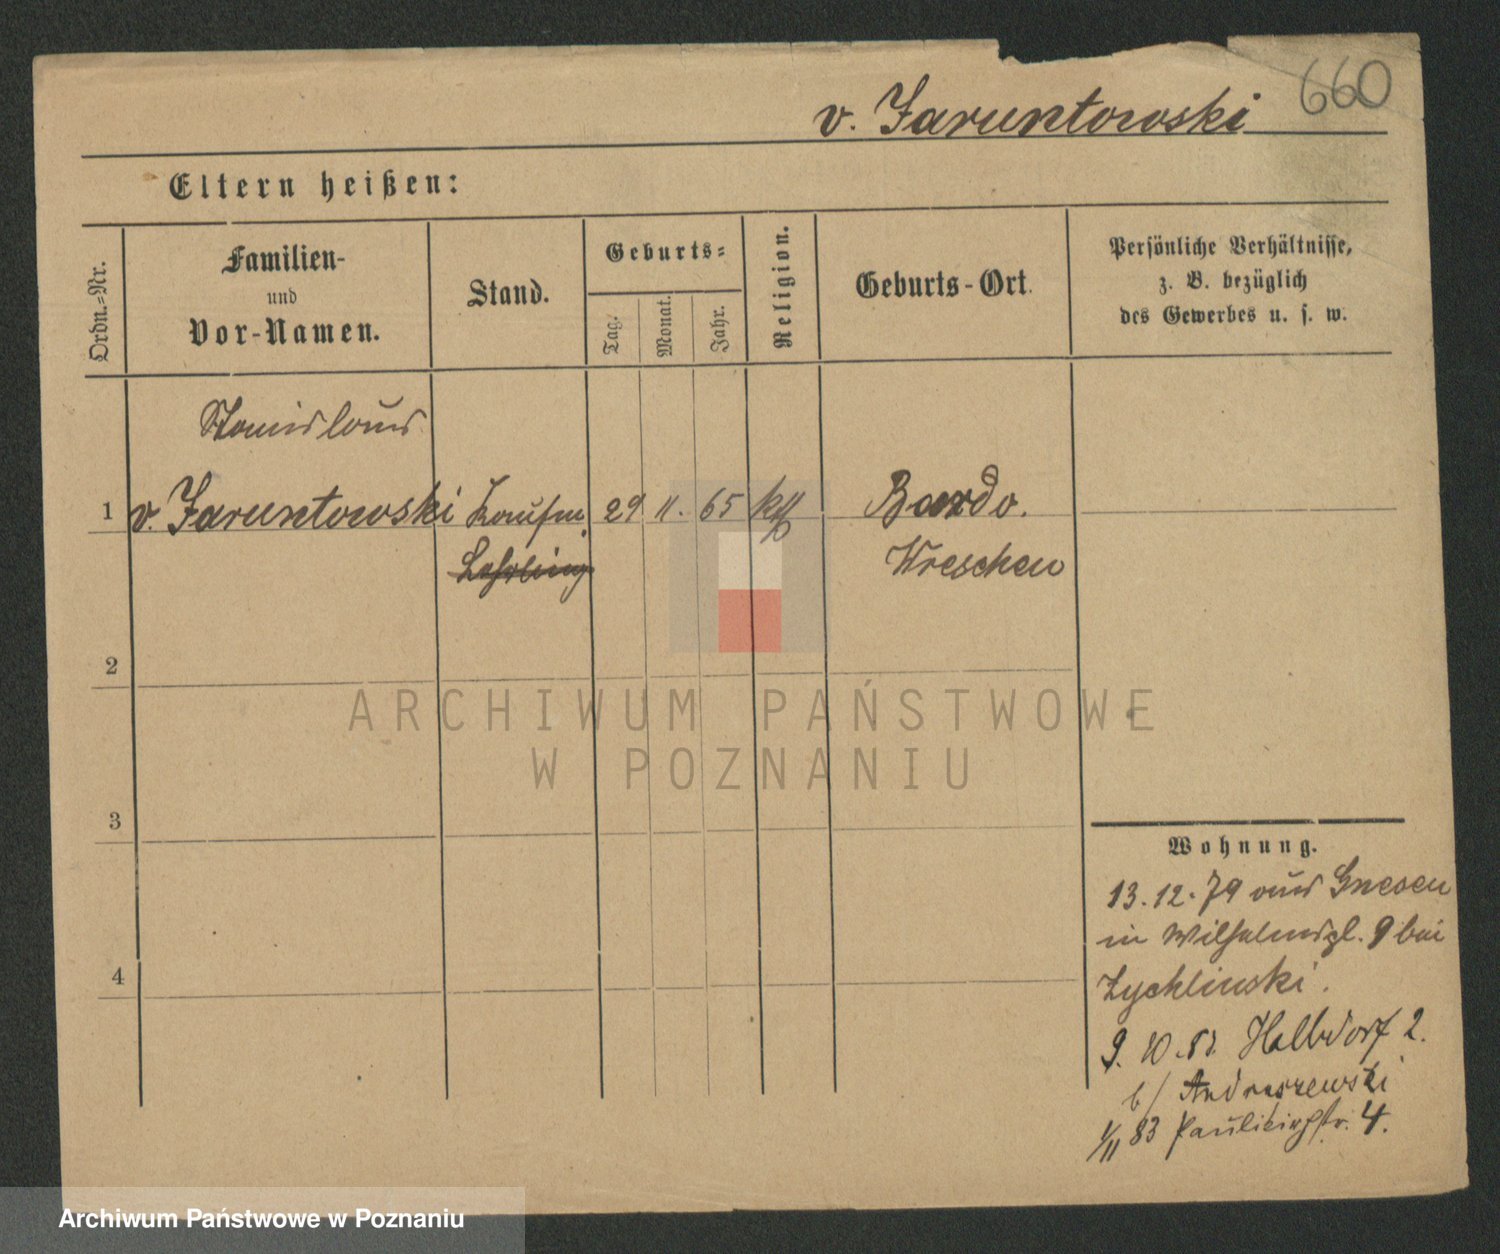 660
v. Jaruntowski
Eltern heißen:
Ordn.=Nr.
Familien-
und
Vor-Namen.
Stand.
Geburts=
Tag.
Monat.
Jahr.
Religion.
Geburts-Ort.
Persönliche Verhältnisse,
z. B. bezüglich
des Gewerbes u. s. w.
Stanislaus
1 v. Jaruntowski Kaufm. 29 11. 65 kth Bardo.
Lehrling Wreschen
2
3
4
Wohnung.
13.12.79 aus Gnesen
in Wilhelmspl. 9 bei
Zychlinski.
9. 10. Halbdorf 2.
b/ Andraszewski
1/11 83 Paulikirchstr. 4.
ARCHIWUM PAŃSTWOWE
W POZNANIU
Archiwum Państwowe w Poznaniu